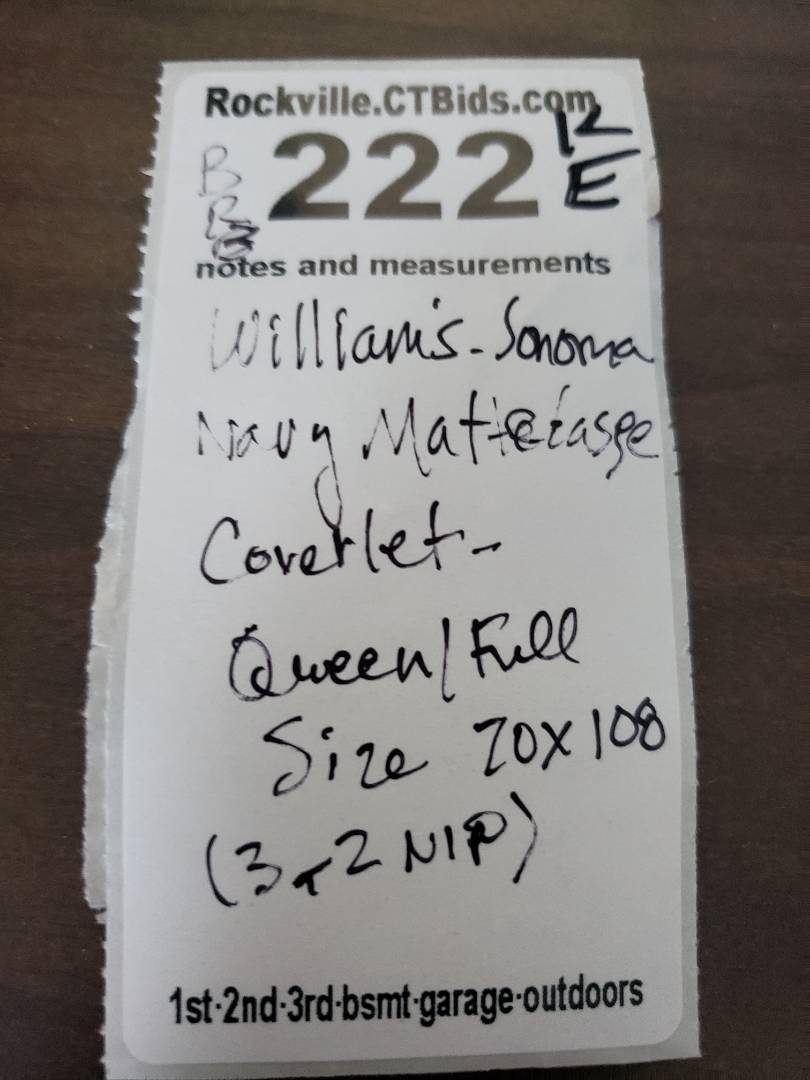 Rockville.CTBids.com
B 222 12
B E
notes and measurements
William's-Sonoma
Navy Mattelasse
Coverlet-
Queen/Full
Size 70X108
(3-2 NIP)
1st·2nd·3rd·bsmt·garage·outdoors